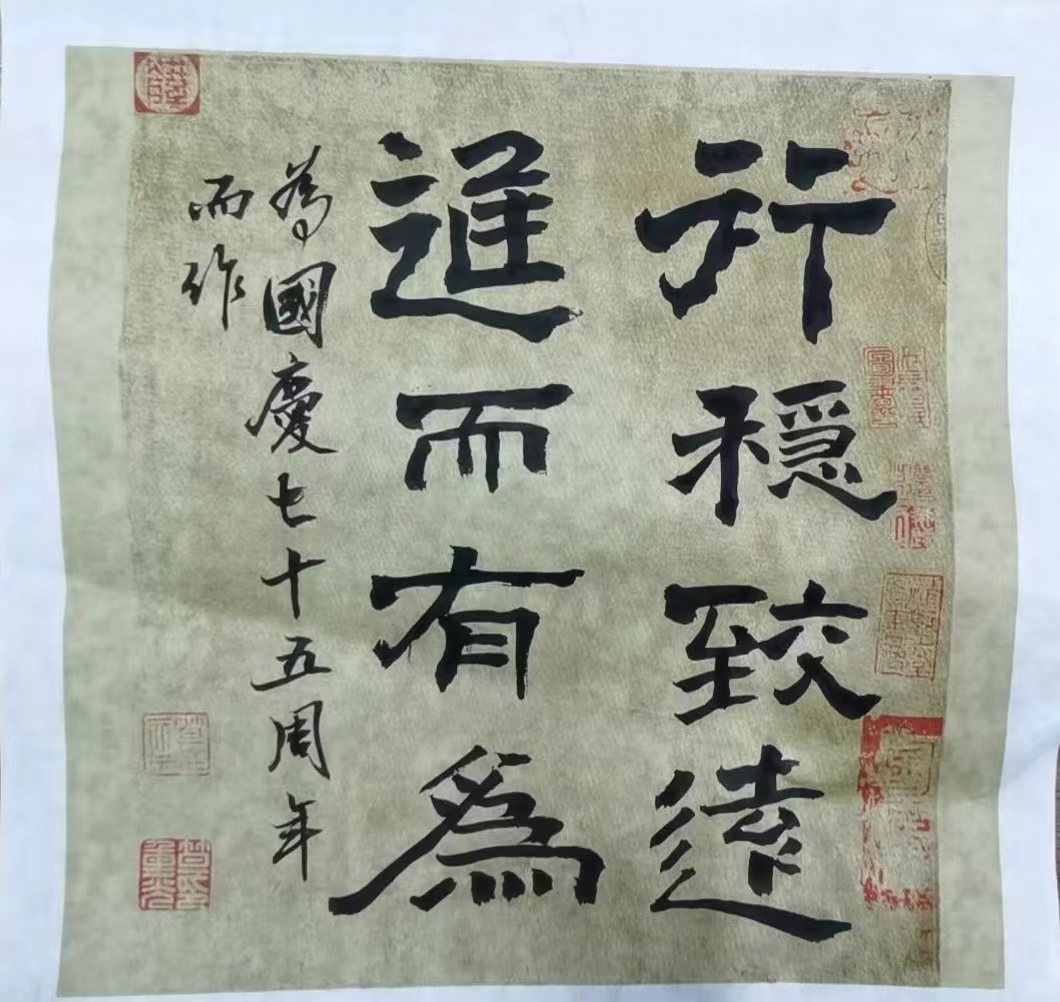 行穩致遠
進而有為
為國慶七十五周年
而作